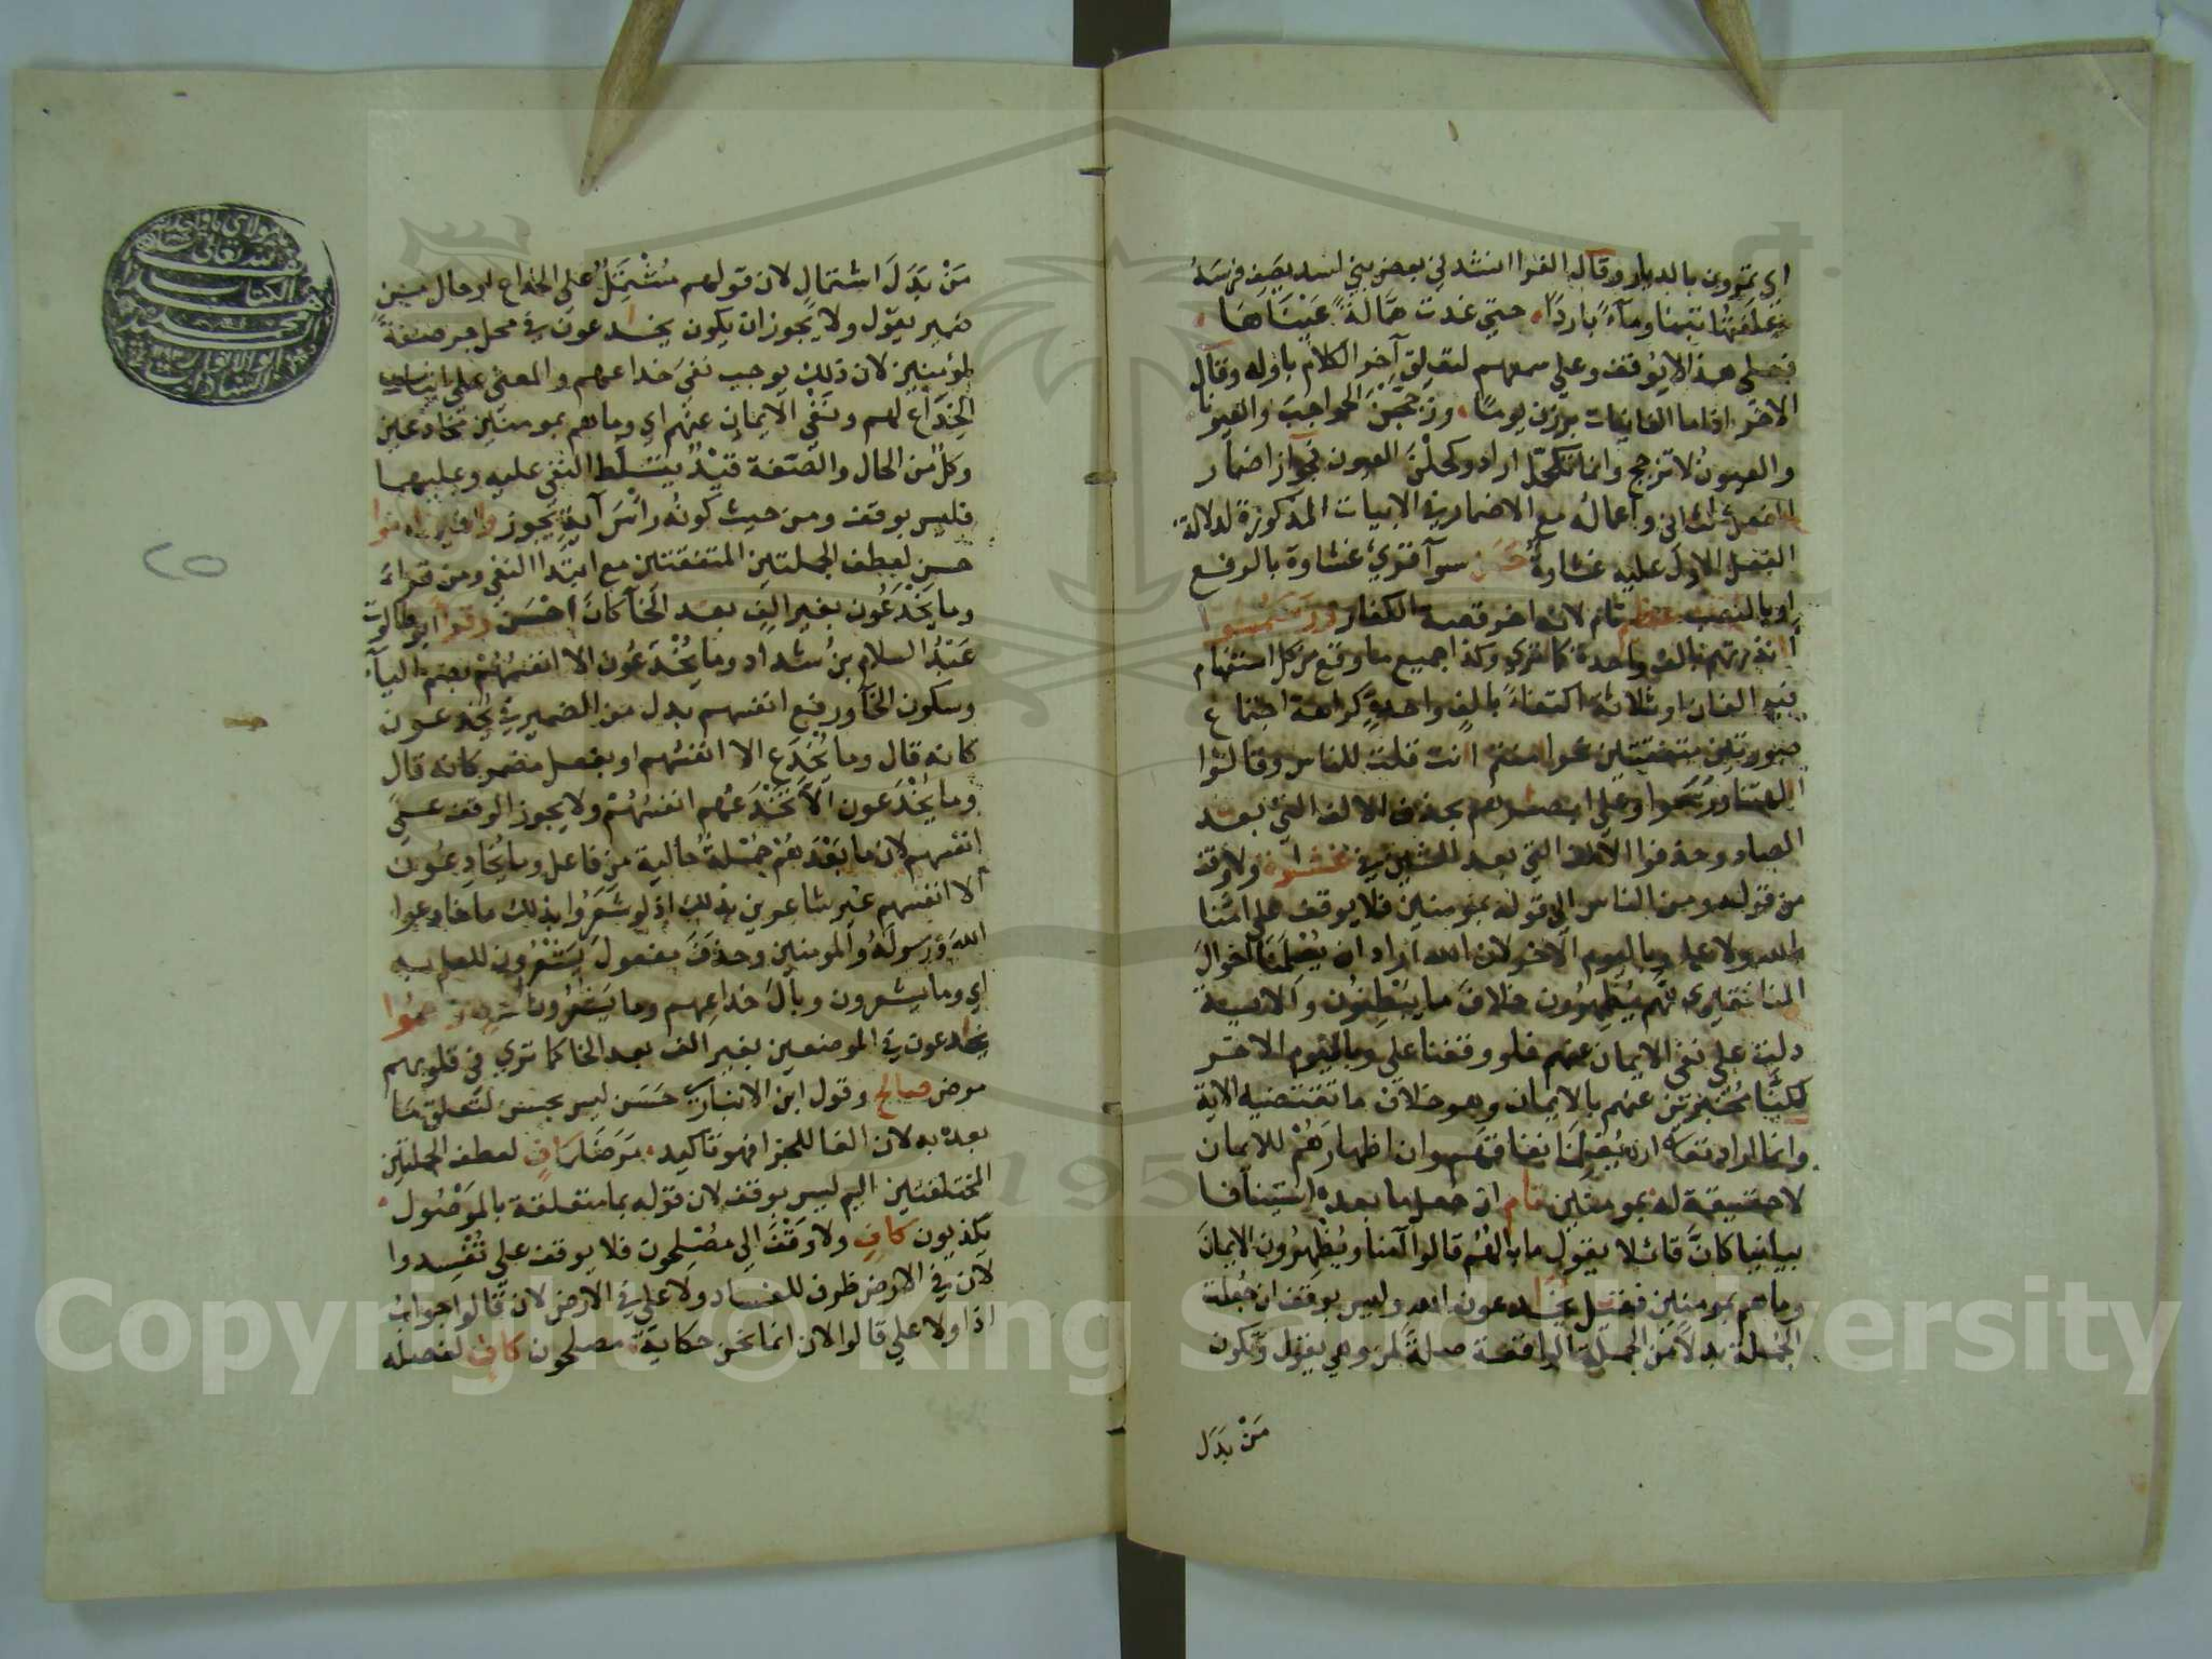 اي تمرون بالديار وقال الفرا انشدني بعض بني اسد يصف فرسه
علفتها تبنا ومآء باردا حتي غدت همالة عيناها
فعلى هذا لا يوقف وعلي سمعهم لتعلق آخر الكلام باوله وقال
الاخر اذا ما الغانيات برزن يوما وزججن الحواجب والعيونا
والعيون لا تزجج وانما تكحل اراد وكحلن العيون فجواز اضمار
الفعل الثاني واعماله مع الاضمار في الابيات المذكورة لدلالة
الفعل الاول عليه غشاوة حسن سوآ قري غشاوة بالرفع
او بالنصب عظيم تام لانه اخر قصة الكفار ورسموا
انذرتهم بالف واحدة كما تري وكذا جميع ما وقع من كل استفهام
فيه الفان او ثلاثة اكتفاء بالف واحدة كراهة اجتماع
صورتين متفقتين نحو امنتم انت قلت للناس وقالوا
الهتنا ورسموا وعلي ابصرهم بحذف الالف التي بعد
الصاد وحذفوا الالف التي بعد الشين في غشوة ولا وقف
من قوله ومن الناس الي قوله بمومنين فلا يوقف علي امنا
بالله ولا علي وباليوم الاخر لان الله اراد ان يعلمنا احوال
المنافقين انهم يظهرون خلاف ما يبطنون والاية
دلت علي نفي الايمان عنهم فلو وقفنا علي وباليوم الاخر
لكنا مخبرين عنهم بالايمان وهو خلاف ما تقتضيه الاية
وانما اراد تعالى ان يعلمنا نفاقهم وان اظهارهم للايمان
لا حقيقة له بمومنين تام ان جعل ما بعده استينافا
بيانيا كان قائلا يقول ما بالهم قالوا آمنا ويظهرون الايمان
وما هم بمومنين فقيل يخدعون الله وليس بوقف ان جعلت
الجملة بدلا من الجملة الواقعة صلة لمن وهي يقول وتكون
مَنْ بَدَل
مَنْ بَدَلَ اشتمال لان قولهم مشتمل علي الخداع او حال من
ضمير يقول ولا يجوز ان يكون يخدعون في محل جر صفة
لمؤمنين لان ذلك يوجب نفي خداعهم والمعنى علي اثبات
الخداع لهم ونفي الايمان عنهم اي وما هم بمومنين مخادعين
وكل من الحال والصفة قيد يتسلط النفي عليه وعليهما
فليس بوقف ومن حيث كونه راس آية يجوز والذين امنوا
حسن لعطف الجملتين المتفقتين مع ابتدا النفي ومن قراء
وما يخدعون بغير الف بعد الخآ كان احسن وقرا ابو طالوت
عبد السلام بن شداد وما يخدعون الا انفسهم بضم اليآ
وسكون الخآ ورفع انفسهم بدل من الضمير في يخدعون
كانه قال وما يخدع الا انفسهم او بفعل مضمر كانه قال
وما يخدعون الا تخدعهم انفسهم ولا يجوز الوقف علي
انفسهم لان ما بعدهم جملة حالية من فاعل وما يخادعون
الا انفسهم غير شاعرين بذلك اذ لو شعروا بذلك ما خادعوا
الله ورسوله والمومنين وحذف مفعول يشعرون للعلم به
اي وما يشعرون وبال خداعهم وما يشعرون ورسموا
يخدعون في الموضعين بغير الف بعد الخا كما تري في قلوبهم
مرض صالح وقول ابن الانباري حسن ليس بحسن لتعلق ما
بعده به لان الفا للجزا فهو تاكيد مرضا كاف لعطف الجملتين
المختلفتين اليم ليس بوقف لان قوله بما متعلقة بالموصول
يكذبون كاف ولا وقف الي مصلحون فلا يوقف علي تفسدوا
لان في الارض ظرف للفساد ولا علي في الارض لان قالوا جواب
اذا ولا علي قالوا لان انما نحن حكاية مصلحون كاف لفصله